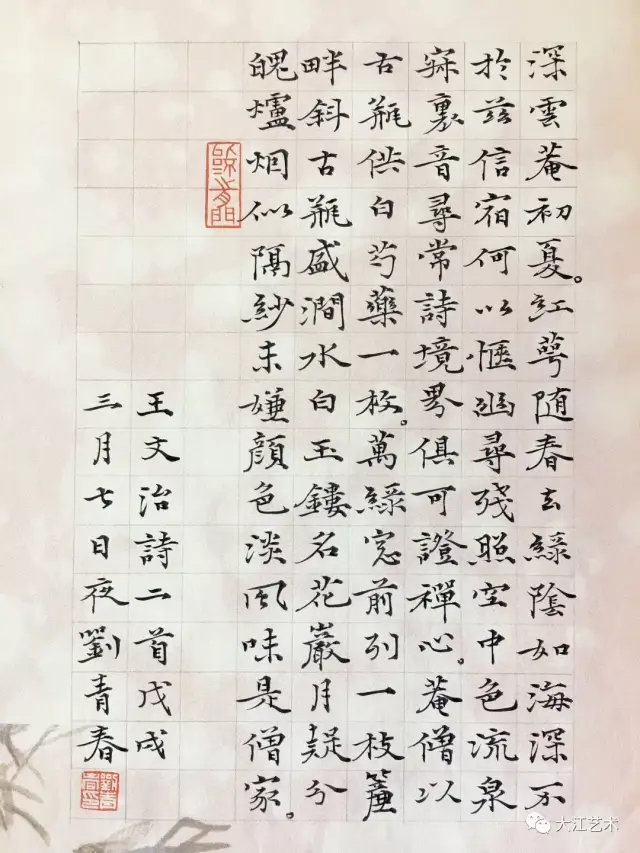 深雲菴初夏。紅萼随春去緑陰如海深不
於兹信宿何以愜幽尋殘照空中色流泉
寂裏音尋常詩境界俱可證禪心。菴僧以
古瓶供白芍藥一枚。萬緑窓前列一枝簷
畔斜古瓶盛澗水白玉鏤名花巖月疑分
魄爐烟似隔紗未嫌顔色淡風味是僧家。
王文治詩二首戊戌
三月七日夜劉青春
劉青春印
大江艺术